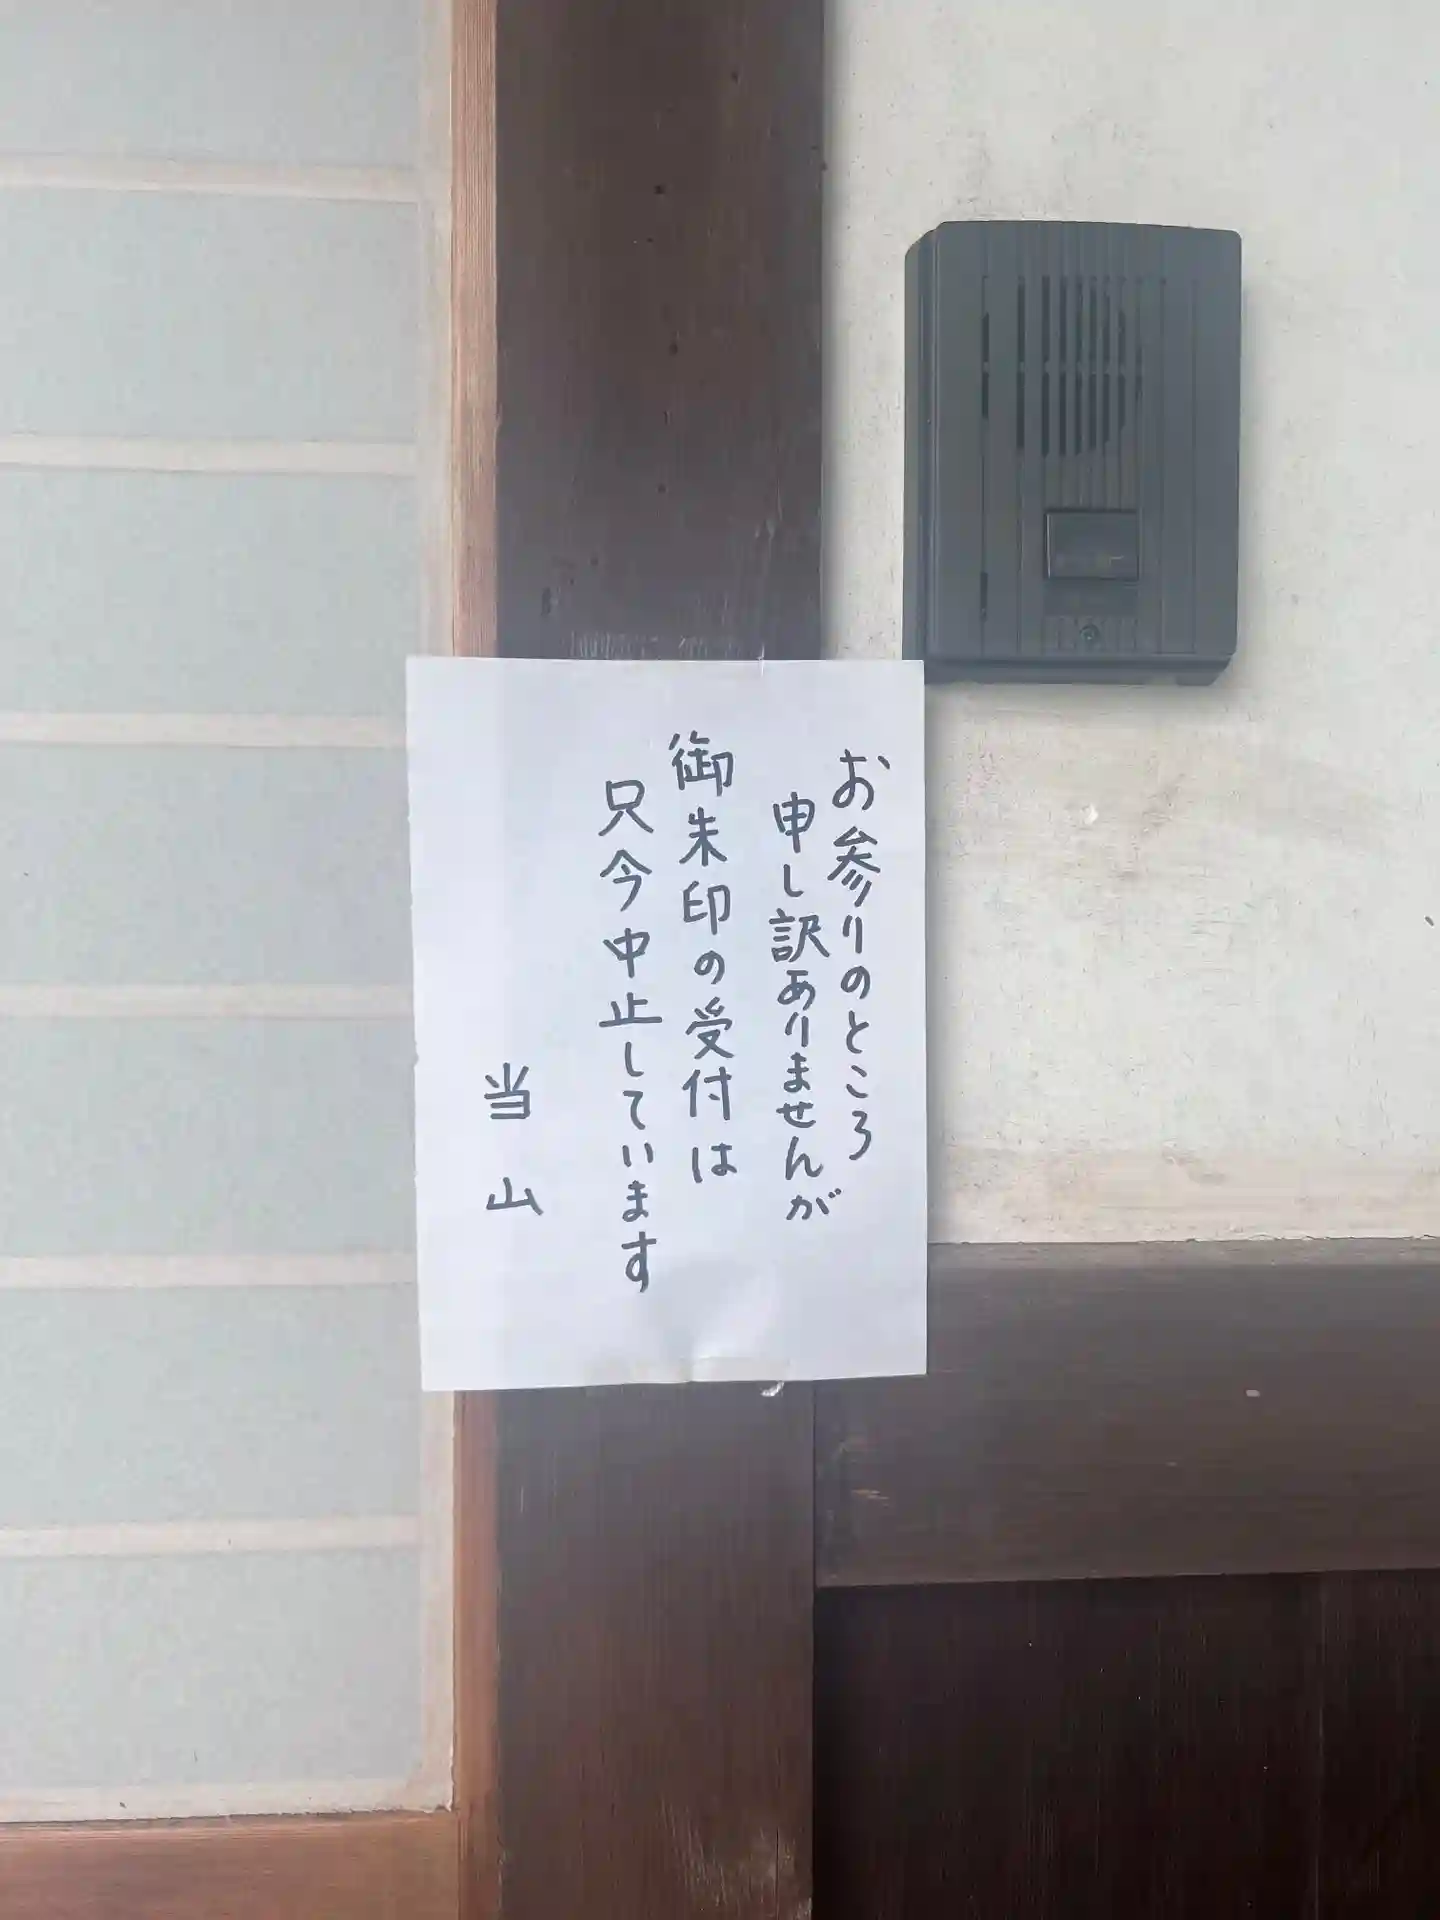 お参りのところ
申し訳ありませんが
御朱印の受付は
只今中止しています
当山